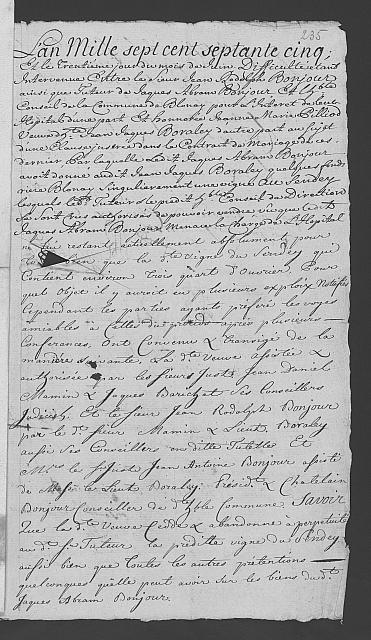 235
L'an Mille sept cent septante cinq;
Et le Trentieme jour du mois de Juin. Difficulté étant
Intervenue Entre le Sieur Jean Rodolph Bonjour
ainsi que Tuteur de Jaques Abram Bonjour Et l'hble
Conseil de la Commune de Blonay pour L'Interet de leur
Hopital d'une part Et honnorée Jeanne Marie Pilliod
Veuve Jean Jaques Boraley d'autre part au sujet
d'une Clause inserée dans le Contrat de Mariage de ces
dernier Par laquelle Ledit Jaques Abram Bonjour
avoit donné audit Jean Jaques Boraley quelques fonds
riere Blonay Singulierement une vigne Au Sendey
lesquels Tuteur Conseil de Direction
autorisés de pouvoir vendre vu que ledit
Jaques Abram Bonjour Menace la charge de L'Hopital
ne lui restant actuellement absolument pour
bien que la dte vigne du Sendey qui
Contient environ Trois quart d'Ouvrier. Pour
quel Objet il y auroit eu plusieurs exploix Notifiés
Cependant les parties ayant preferé les voyes
amiables à Celles du apres plusieurs
Conferances. Ont Convenu & Transigé de la
manière suivante. La dte Veuve assistée &
authorisée par les Sieurs Juste Jean Daniel
Mamin & Jaques Barichet ses Conseillers
Et le sieur Jean Rodolph Bonjour
par le dt sieur Mamin & Lieut. Boraley
aussi ses Conseillers en ditte Tutelles Et
Jean Antoine Bonjour assisté
de le Lieut. Boraley. Présidt & Chatelain
Bonjour Conseiller de dt hble Commune Savoir
Que la dte Veuve Cedde & abandonne à perpétuité
au dt Sr Tuteur la preditte vigne du Sendey
aussi bien que Toutes les autres prétentions
quelconques qu'elle peut avoir sur les biens du dt
Jaques Abram Bonjour.